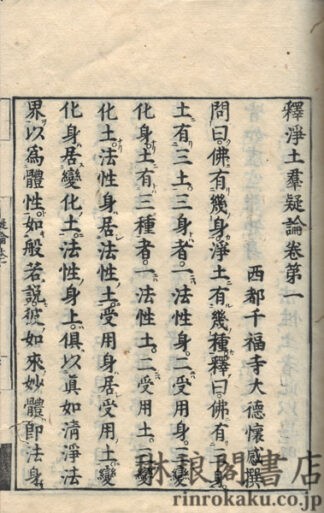 釋淨土羣疑論卷第一
西都千福寺大德懷感撰
問曰佛有幾身淨土有幾種釋曰佛有三身
土有三土三身者一法性身二受用身三變
化身土有三種者一法性土二受用土三變
化土法性身居法性土受用身居受用土變
化身居變化土法性身土俱以眞如清淨法
界以爲體性如般若說彼如來妙體即法身
琳琅閣書店
rinrokaku.co.jp